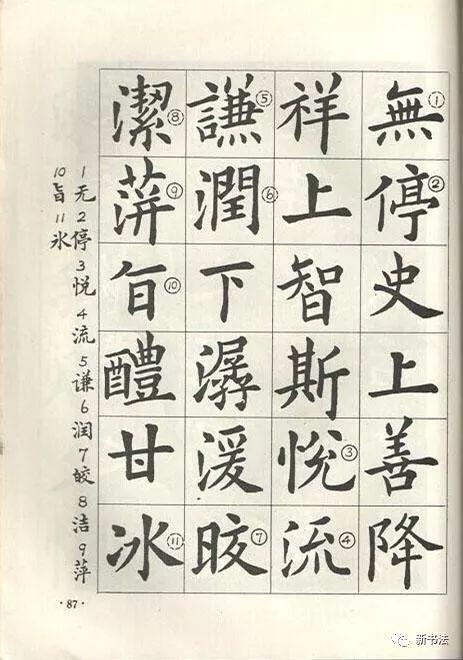 無①停②史上善降
祥上智斯悅③流④
謙⑤潤⑥下潺湲晈⑦
潔⑧蓱⑨旨⑩醴甘冰⑪
1无2停3悦4流5谦6润7皎8洁9萍
10旨11氷
·87·
新书法